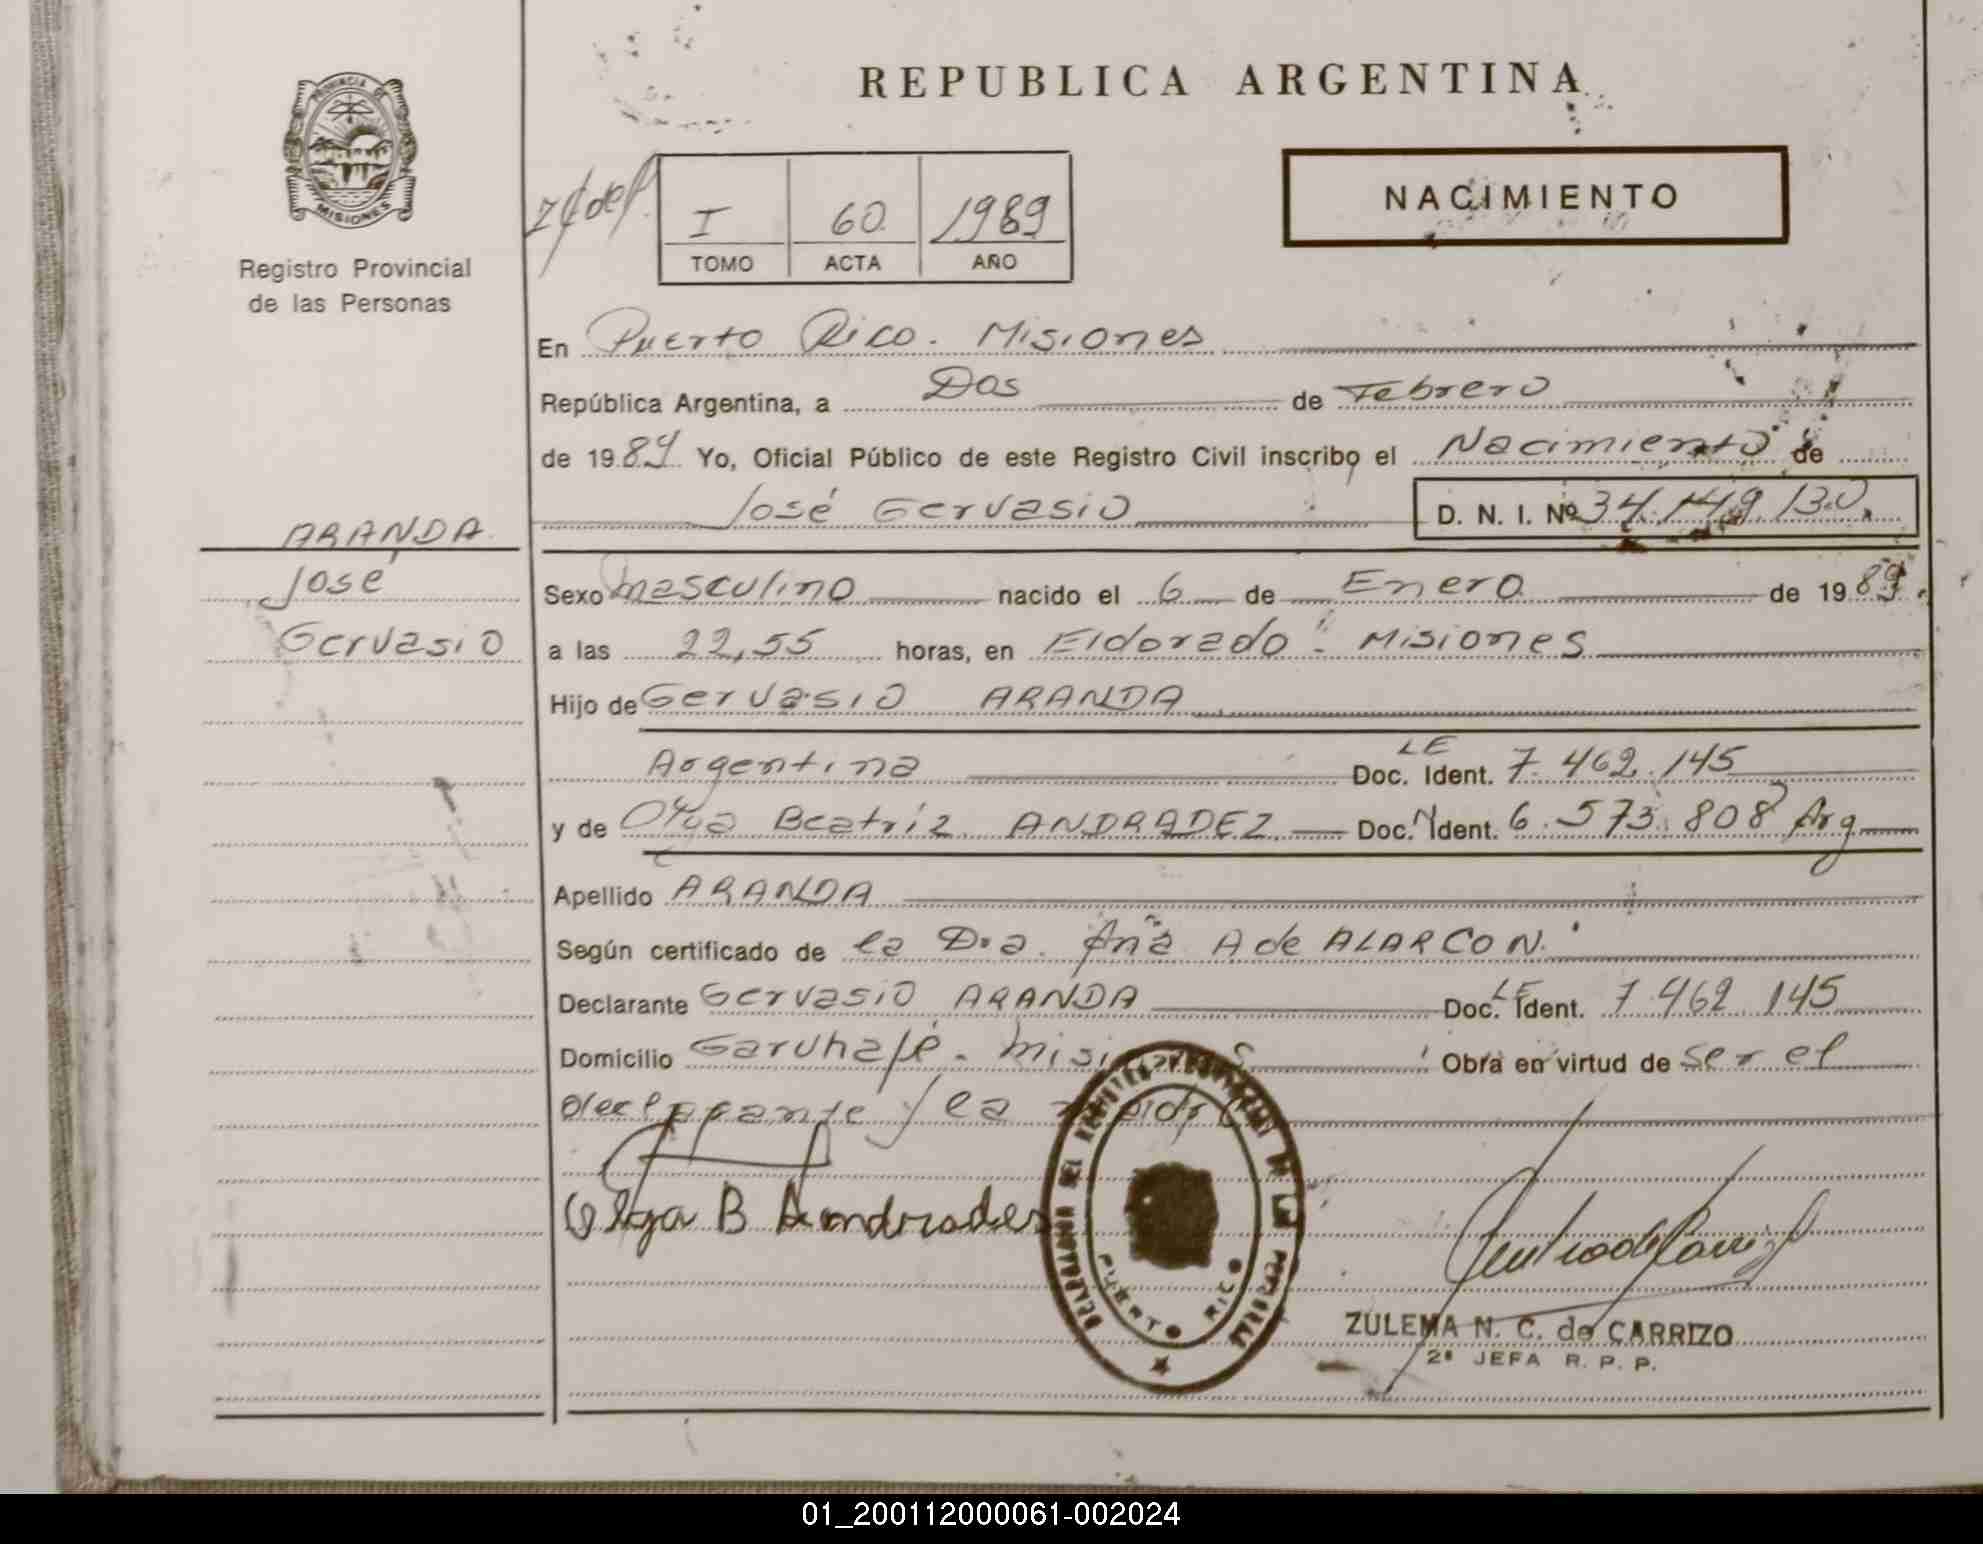 REPUBLICA ARGENTINA
PROVINCIA DE
MISIONES
Registro Provincial
de las Personas
I 60 1989
TOMO ACTA AÑO
NACIMIENTO
En Puerto Rico. Misiones
República Argentina, a Dos de Febrero
de 1989 Yo, Oficial Público de este Registro Civil inscribo el Nacimiento de
José Gervasio D. N. I. Nº 34.149.130.
ARANDA
José
Gervasio
Sexo masculino nacido el 6 de Enero de 1989.
a las 22,55 horas, en Eldorado - Misiones
Hijo de Gervasio ARANDA
Argentina Doc. Ident. LE 7.462.145
y de Olga Beatríz ANDRADEZ Doc. Ident. 6.573.808 Arg
Apellido ARANDA
Según certificado de la Dra. Ana A de ALARCON.
Declarante Gervasio ARANDA Doc. Ident. LE 7.462.145
Domicilio Garuhapé - Misiones Obra en virtud de ser el
declarante y la madre
Olga B Andrades
DELEGACION DEL REGISTRO PROVINCIAL DE LAS PERSONAS
PUERTO RICO
ZULEMA N. C. de CARRIZO
2ª JEFA R. P. P.
01_200112000061-002024